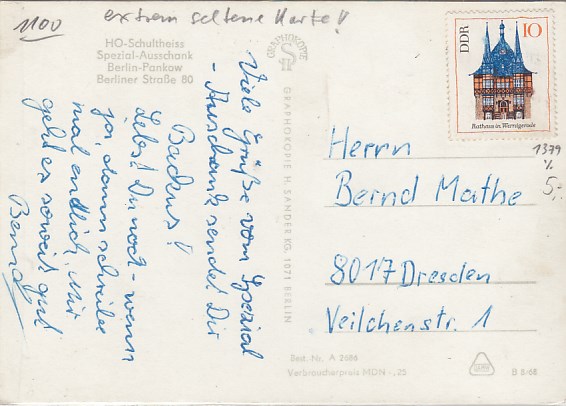 1100 extrem seltene Karte!!
HO-Schultheiss
Spezial-Ausschank
Berlin-Pankow
Berliner Straße 80
GRAPHOKOPIE
Viele Grüße vom Spezial
-Ausschank sendet Dir
Backus!
Lebst Du noch - wenn
ja, dann schreibe
mal endlich. Mir
geht es soweit gut
Bernd
GRAPHOKOPIE H. SANDER KG, 1071 BERLIN
DDR 10
Rathaus in Wernigerode
1379
5,-
Herrn
Bernd Mathe
8017 Dresden
Veilchenstr. 1
Best. Nr. A 2688
Verbraucherpreis MDN -,22
B 8/68